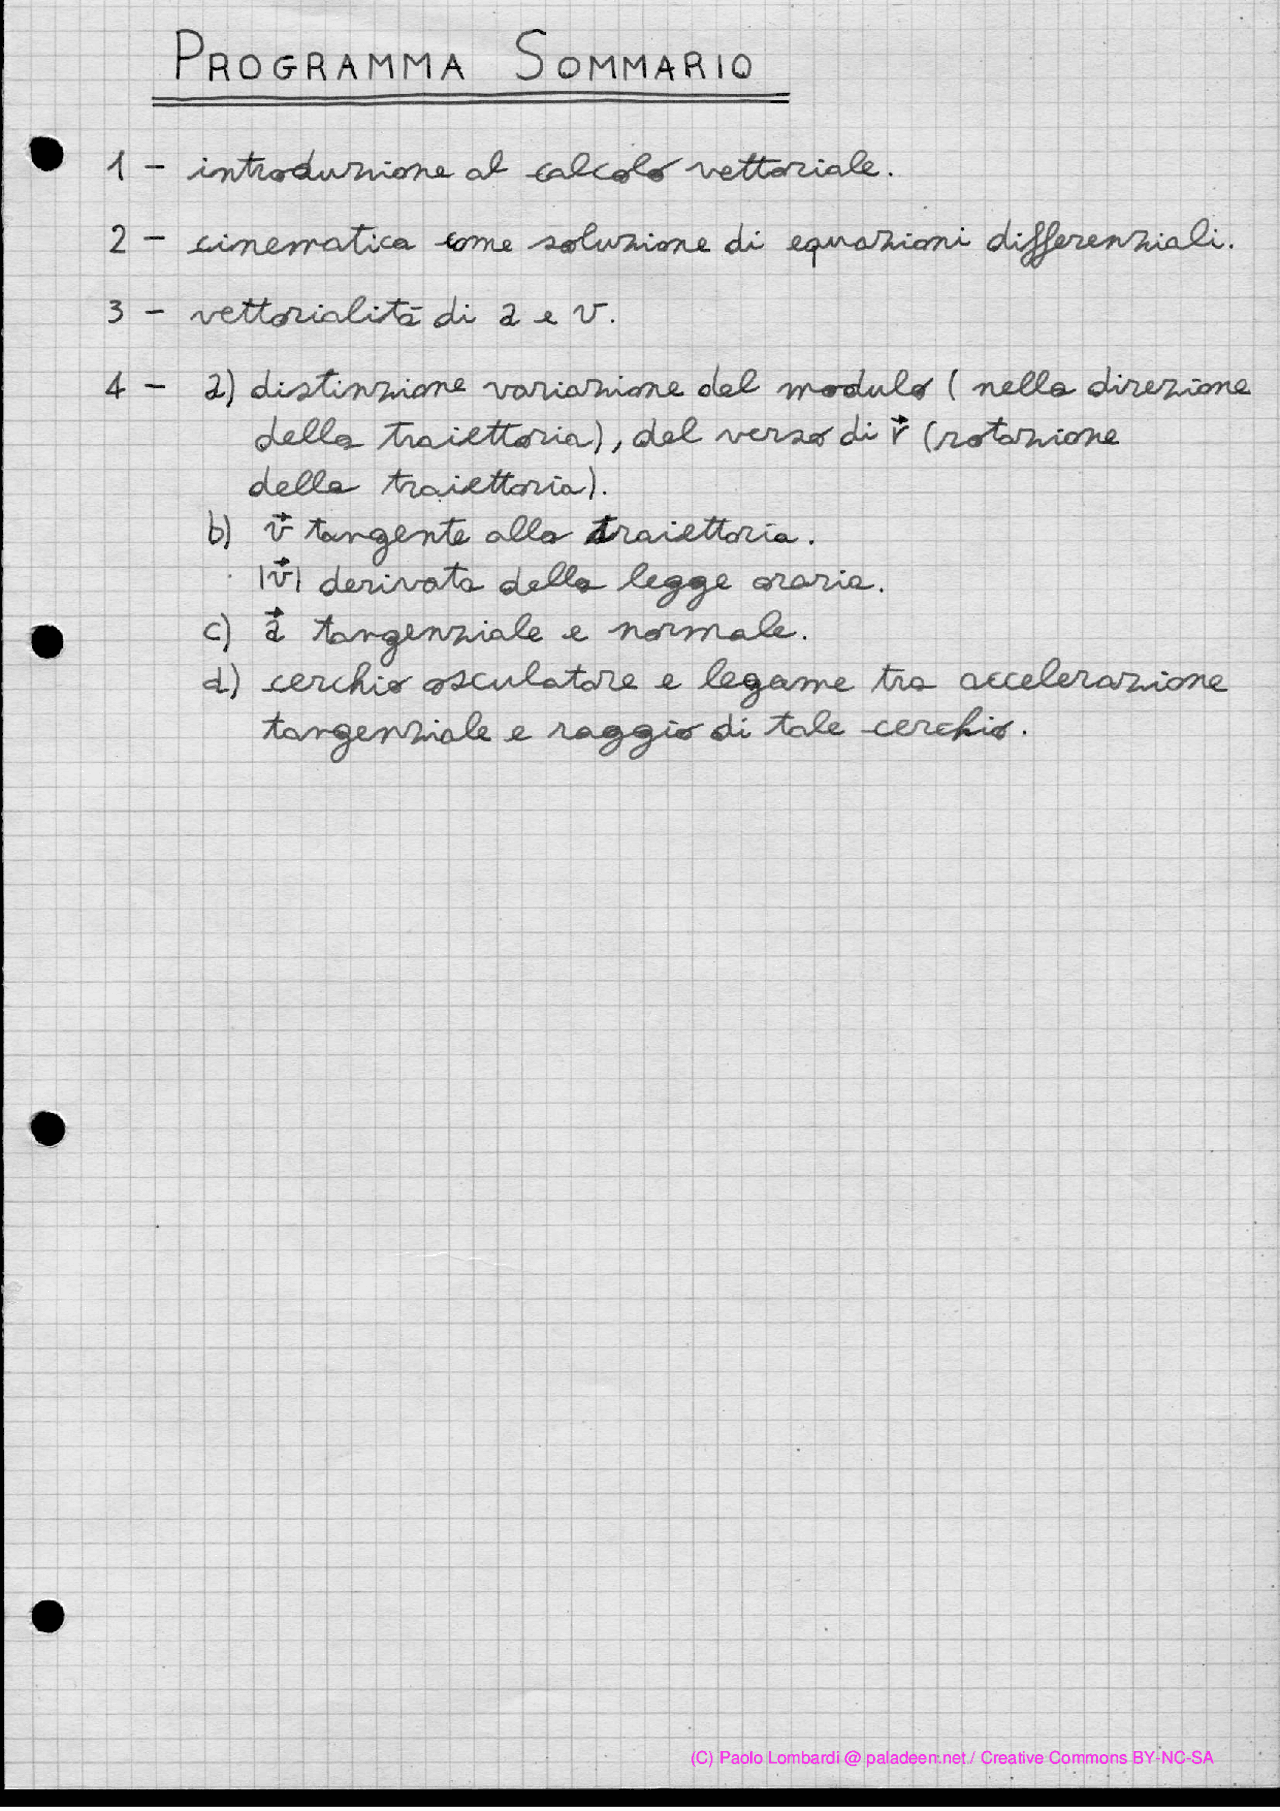 PROGRAMMA SOMMARIO
1 - introduzione al calcolo vettoriale.
2 - cinematica come soluzione di equazioni differenziali.
3 - vettorialità di a e v.
4 - a) distinzione variazione del modulo (nella direzione
della traiettoria), del verso di r⃗ (rotazione
della traiettoria).
b) v⃗ tangente alla traiettoria.
|v⃗| derivata della legge oraria.
c) a⃗ tangenziale e normale.
d) cerchio osculatore e legame tra accelerazione
tangenziale e raggio di tale cerchio.
(C) Paolo Lombardi @ paladeen.net / Creative Commons BY-NC-SA